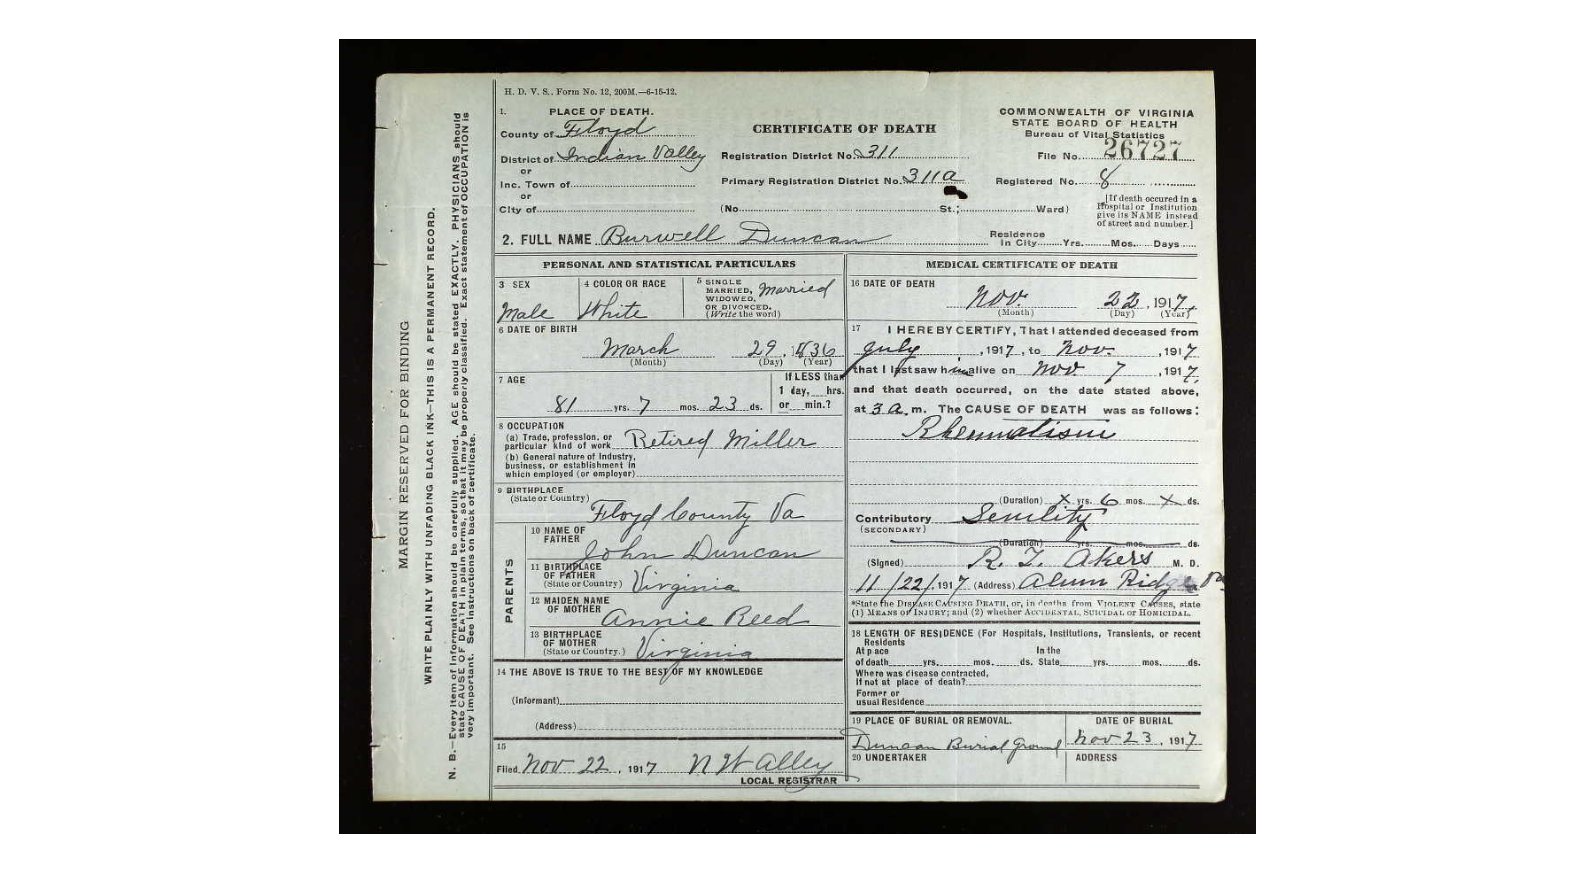 H. D. V. S., Form No. 12, 200M.—6-15-12.
1. PLACE OF DEATH.
County of Floyd
District of Indian Valley
or
Inc. Town of
or
City of
CERTIFICATE OF DEATH
Registration District No. 311
Primary Registration District No. 311a
(No. St.; Ward)
COMMONWEALTH OF VIRGINIA
STATE BOARD OF HEALTH
Bureau of Vital Statistics
File No. 26727
Registered No. 8
[If death occured in a
Hospital or Institution
give its NAME instead
of street and number.]
2. FULL NAME Burwell Duncan
Residence
In City Yrs. Mos. Days
PERSONAL AND STATISTICAL PARTICULARS
3 SEX
Male
4 COLOR OR RACE
White
5 SINGLE
MARRIED,
WIDOWED,
OR DIVORCED.
(Write the word)
Married
6 DATE OF BIRTH
March 29, 1836
(Month) (Day) (Year)
7 AGE
81 yrs. 7 mos. 23 ds.
If LESS than
1 day, hrs.
or min.?
8 OCCUPATION
(a) Trade, profession, or
particular kind of work Retired Miller
(b) General nature of Industry,
business, or establishment in
which employed (or employer)
9 BIRTHPLACE
(State or Country)
Floyd County Va
PARENTS
10 NAME OF
FATHER
John Duncan
11 BIRTHPLACE
OF FATHER
(State or Country) Virginia
12 MAIDEN NAME
OF MOTHER
Annie Reed
13 BIRTHPLACE
OF MOTHER
(State or Country.) Virginia
14 THE ABOVE IS TRUE TO THE BEST OF MY KNOWLEDGE
(Informant)
(Address)
15
Filed Nov 22, 1917 N W Alley
LOCAL REGISTRAR
MEDICAL CERTIFICATE OF DEATH
16 DATE OF DEATH
Nov. 22, 1917
(Month) (Day) (Year)
17 I HEREBY CERTIFY, That I attended deceased from
July, 1917, to Nov., 1917
that I last saw him alive on Nov 7, 1917,
and that death occurred, on the date stated above,
at 3 a. m. The CAUSE OF DEATH was as follows:
Rheumatism
(Duration) x yrs. 6 mos. x ds.
Contributory Senility
(SECONDARY)
(Duration) yrs. mos. ds.
(Signed) R. T. Akers M. D.
11/22/1917 (Address) Alum Ridge Va
*State the DISEASE CAUSING DEATH, or, in deaths from VIOLENT CAUSES, state
(1) MEANS OF INJURY; and (2) whether ACCIDENTAL, SUICIDAL or HOMICIDAL.
18 LENGTH OF RESIDENCE (For Hospitals, Institutions, Transients, or recent
Residents
At place In the
of death yrs. mos. ds. State yrs. mos. ds.
Where was disease contracted,
If not at place of death?
Former or
usual Residence
19 PLACE OF BURIAL OR REMOVAL.
Duncan Burial Ground
DATE OF BURIAL
Nov 23, 1917
20 UNDERTAKER
ADDRESS
MARGIN RESERVED FOR BINDING
WRITE PLAINLY WITH UNFADING BLACK INK—THIS IS A PERMANENT RECORD.
N. B.—Every item of information should be carefully supplied. AGE should be stated EXACTLY. PHYSICIANS should
state CAUSE OF DEATH in plain terms, so that it may be properly classified. Exact statement of OCCUPATION is
very important. See instructions on back of certificate.